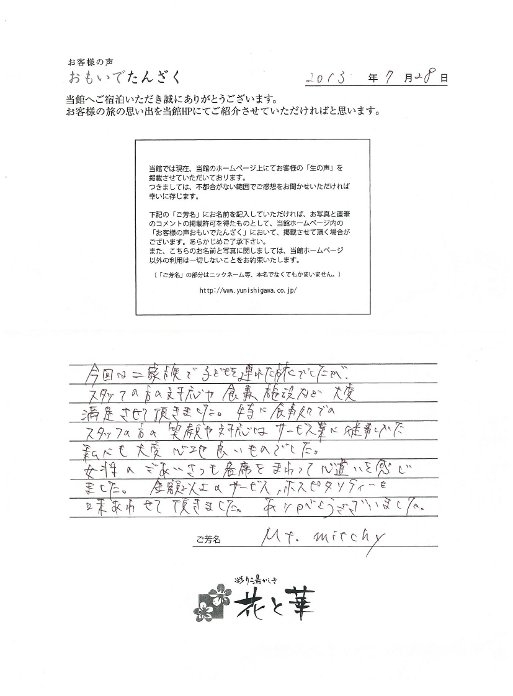 お客様の声
おもいでたんざく
2013 年 7 月 28 日
当館へご宿泊いただき誠にありがとうございます。
お客様の旅の思い出を当館HPにてご紹介させていただければと思います。
当館では現在、当館のホームページ上にてお客様の「生の声」を
掲載させていただいております。
つきましては、不都合がない範囲でご感想をお聞かせいただければ
幸いに存じます。
下記の「ご芳名」にお名前を記入していただければ、お写真と直筆
のコメントの掲載許可を得たものとして、当館ホームページ内の
「お客様の声おもいでたんざく」において、掲載させて頂く場合が
ございます。あらかじめご了承下さい。
また、こちらのお名前と写真に関しましては、当館ホームページ
以外の利用は一切しないことをお約束いたします。
(「ご芳名」の部分はニックネーム等、本名でなくてもかまいません。)
http://www.yunishigawa.co.jp/
今回は二家族で子どもを連れた旅でしたが、
スタッフの方の対応や食事、施設など大変
満足させて頂きました。特に食事処での
スタッフの方の笑顔や対応はサービス業に従事した
私にも大変心地良いものでした。
女将のごあいさつも各席をまわって心遣いを感じ
ました。金額以上のサービス、ホスピタリティーを
味あわせて頂きました。ありがとうございました。
ご芳名 Mt. mitchy
彩り湯かしき
花と華